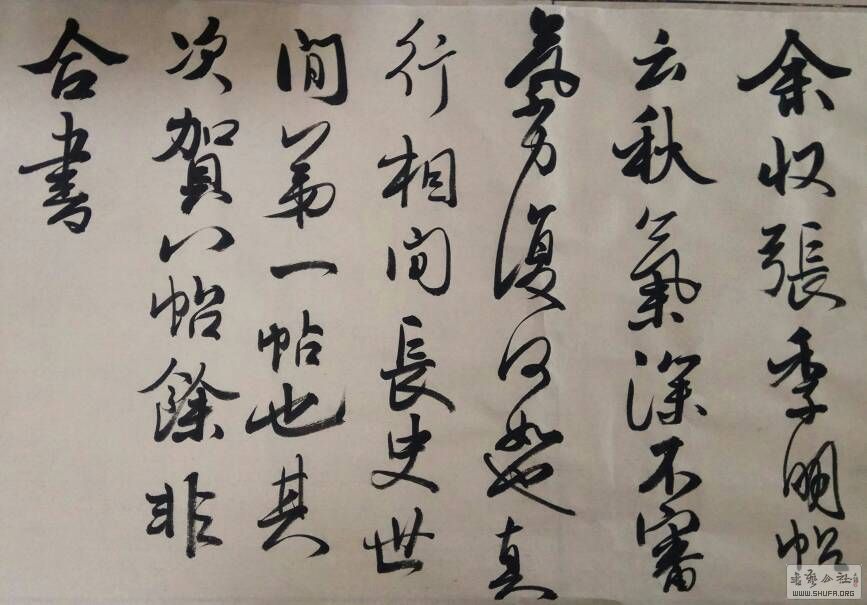 余収張季明帖
云秋氣深不審
氣力復何如也真
行相間長史世
間第一帖也其
次賀八帖餘非
合書
書藝公社
WWW.SHUFA.ORG